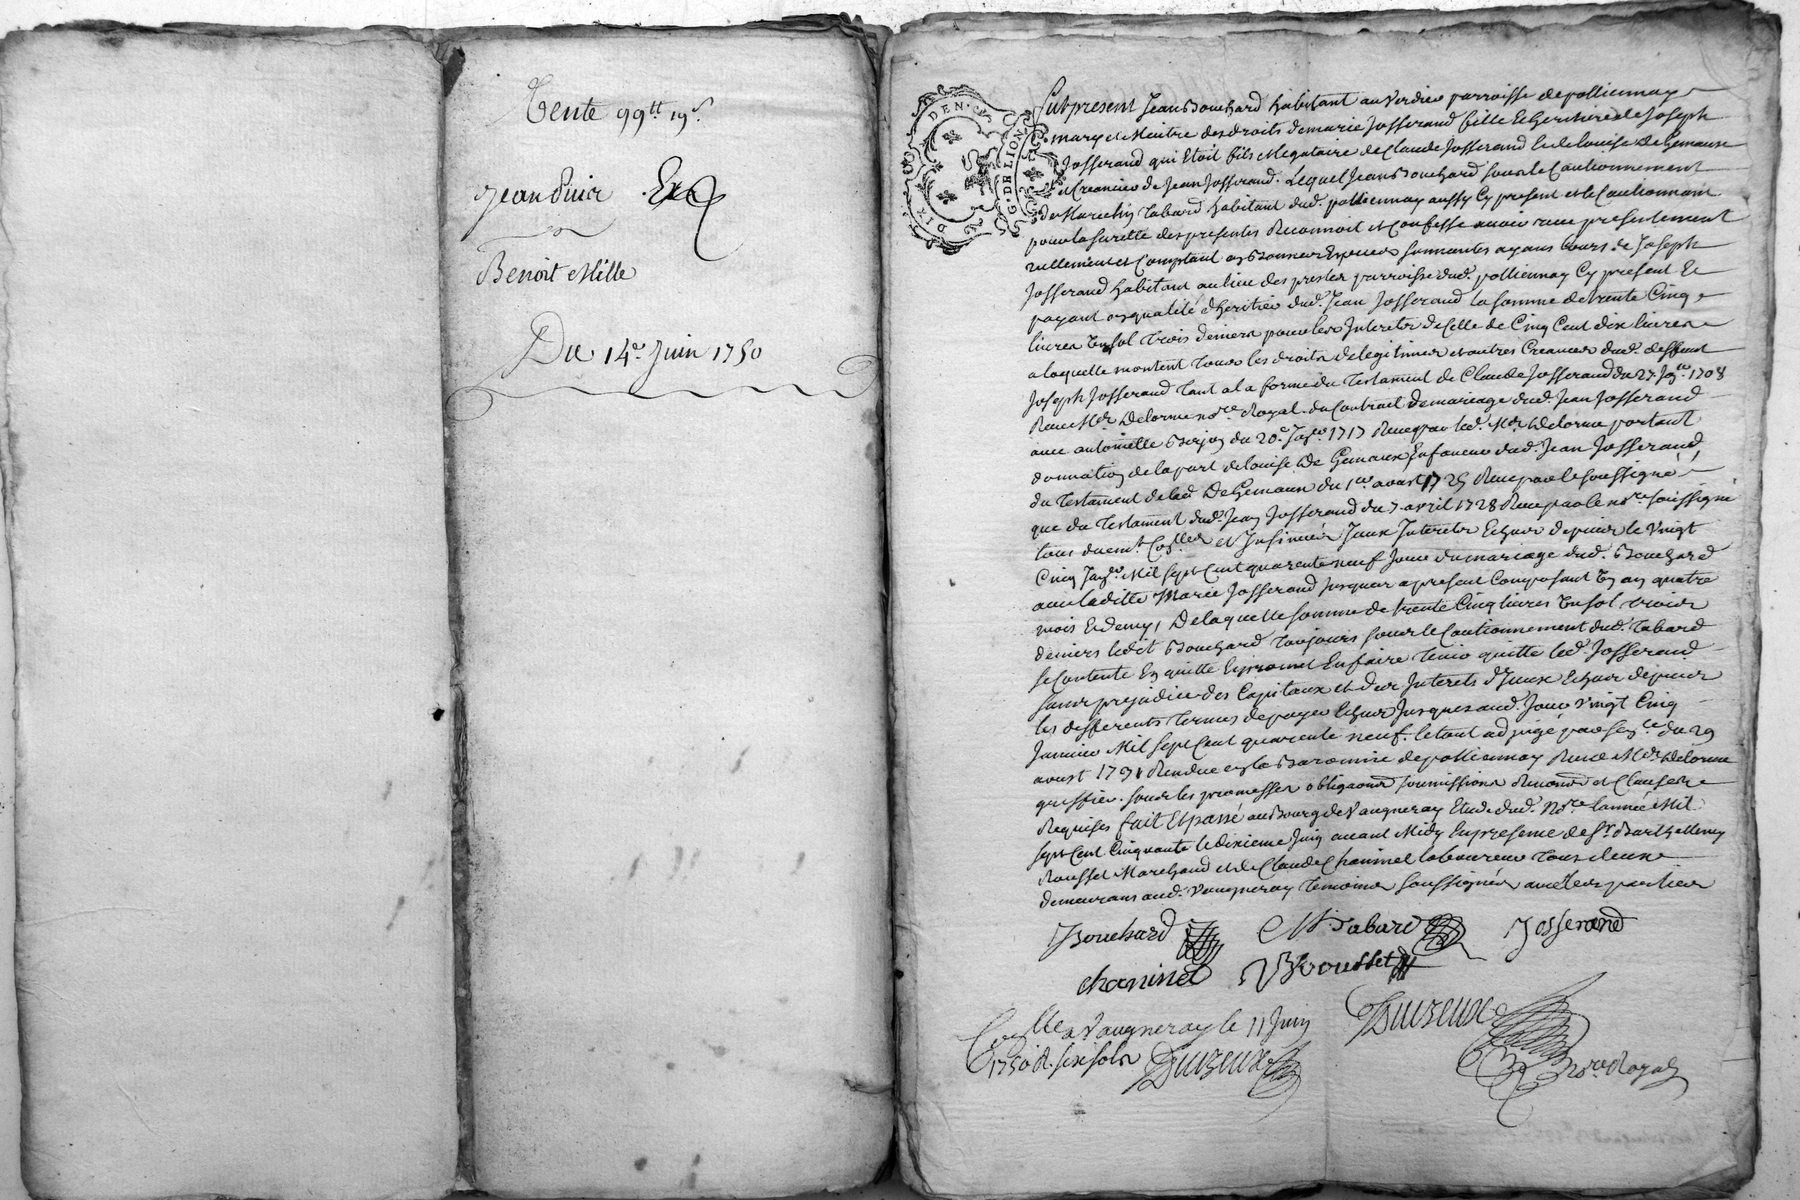 Vente 99tt 19s.
Jean Duir . Ex
Benoit Mille
Du 14e Juin 1750
G. DE LION
DIX DEN.
fut present Jean Bouchard habitant au Verdier parroisse de polliennay
mary et Maitre des droits de marie Josserand fille et heritiere de Joseph
Josserand qui Etoit fils et legataire de Claude Josserand et de Louise de Gemaux
et Creancier de Jean Josserand. Lequel Jean Bouchard sous le Cautionnement
de habitant dud. polliennay aussy Cy present et le Cautionnant
pour la surette des presentes Reconnoit et Confesse avoir receu presentement
reellement et Comptant en bonnes Especes sonnantes ayans Cours de Joseph
Josserand habitant au lieu des presles parroisse dud. polliennay Cy present et
payant en qualité d'heritier dud. Jean Josserand la somme de trente Cinq
livres un sol trois deniers pour les Interets de Celle de Cinq Cent dix livres
a laquelle montent tous les droits de legitimes et autres Creances dud. deffunt
Joseph Josserand tant a la forme du Testament de Claude Josserand du 27 1708
Receu Me Delorme nore Royal. du Contract de mariage dud. Jean Josserand
avec antoinette du 20e 1717 Receu par led. Me Delorme portant
donnation de la part de Louise De Gemaux En faveur dud. Jean Josserand
du Testament de lad. De Gemaux du 1er avast 1725 Receu par le soussigné
que du Testament dud. Jean Josserand du 7 avril 1728 Receu par le nore soussigné
tous duemt. Collés et Insinués Iceux Interets Echus depuis le Vingt
Cinq Janvr. Mil sept Cent quarente neuf Jour du mariage dud. Bouchard
avec laditte Marie Josserand Jusques a present Composant un an quatre
mois et demy, De laquelle somme de trente Cinq livres un sol trois
deniers ledit Bouchard toujours sous le Cautionnement dud. Tabard
se Contente En quitte Et promet En faire tenir quitte led. Josserand
sans prejudice des Capitaux et des Interets d'Iceux Echus depuis
les differents termes de payer Echus Jusques aud. Jour Vingt Cinq
Janvier Mil sept Cent quarente neuf. le tout adjugé par senc.ce du 29
avust 1731 Rendue en la Baronnie de pollionnay Receu Me Delorme
greffier. sous les promesses obligaons soumissions Renonons et Clauses
Requises fait Et passé au Bourg de Vaugneray Etude dud. Nore l'année Mil
sept Cent Cinquante le dixieme Juin avant Midy En presence de Sr. Barthellemy
Rousset Marchand et de Claude Chaninel laboureur tous deux
demeurans aud. Vaugneray temoins soussignés avec les parties
Bouchard M. Tabard Josserand
chaninel B Rousset
Collé a Vaugneray le 11 Juin
1750 R. six sols Duizeux
Duizeux
nore Royal